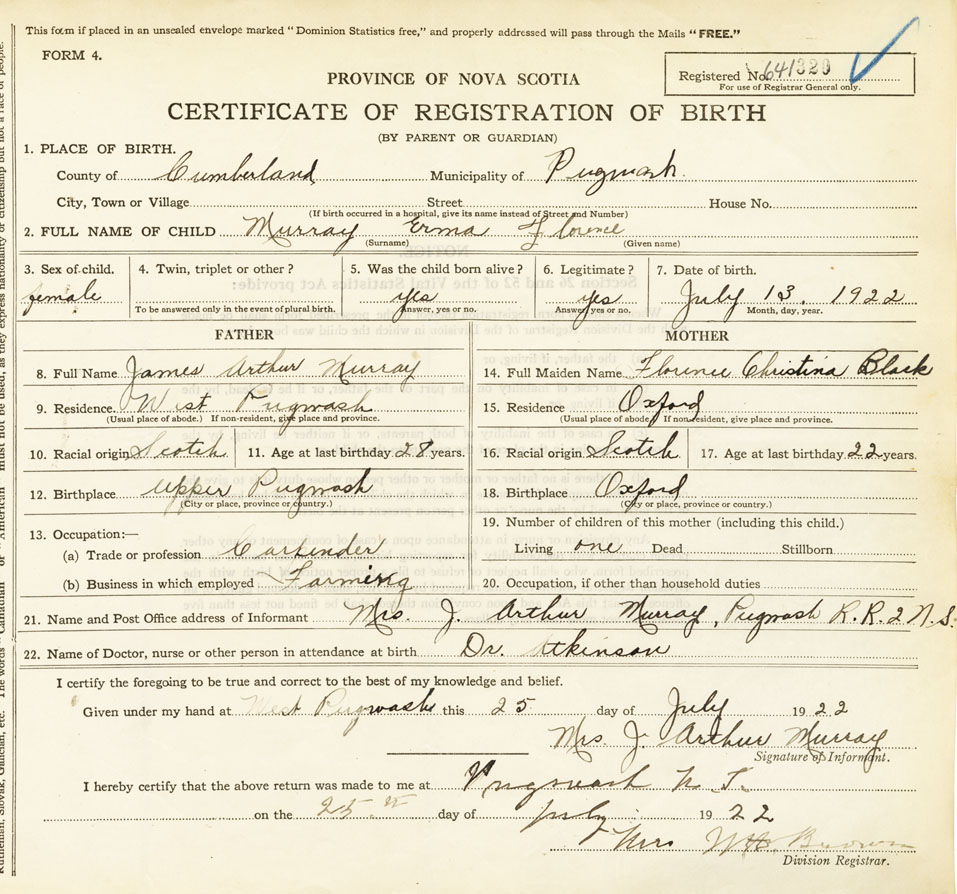 This form if placed in an unsealed envelope marked "Dominion Statistics free," and properly addressed will pass through the Mails "FREE."
FORM 4.
Registered No. 641320
For use of Registrar General only.
PROVINCE OF NOVA SCOTIA
CERTIFICATE OF REGISTRATION OF BIRTH
(BY PARENT OR GUARDIAN)
1. PLACE OF BIRTH.
County of Cumberland Municipality of Pugwash.
City, Town or Village Street House No.
(If birth occurred in a hospital, give its name instead of Street and Number)
2. FULL NAME OF CHILD Murray Erma Florence
(Surname) (Given name)
3. Sex of child. 4. Twin, triplet or other? 5. Was the child born alive? 6. Legitimate? 7. Date of birth.
female yes yes July 13. 1922
To be answered only in the event of plural birth. Answer, yes or no. Answer, yes or no. Month, day, year.
FATHER MOTHER
8. Full Name James Arthur Murray 14. Full Maiden Name Florence Christina Black
9. Residence. West Pugwash 15. Residence Oxford
(Usual place of abode.) If non-resident, give place and province. (Usual place of abode) If nonresident, give place and province.
10. Racial origin Scotch 11. Age at last birthday 28 years. 16. Racial origin Scotch 17. Age at last birthday 22 years.
12. Birthplace Upper Pugwash 18. Birthplace Oxford
(City or place, province or country.) (City or place, province or country.)
13. Occupation:— 19. Number of children of this mother (including this child.)
(a) Trade or profession Carpender Living one Dead Stillborn
(b) Business in which employed Farming 20. Occupation, if other than household duties
21. Name and Post Office address of Informant Mrs. J. Arthur Murray, Pugwash R.R. 2 N.S.
22. Name of Doctor, nurse or other person in attendance at birth Dr. Atkinson
I certify the foregoing to be true and correct to the best of my knowledge and belief.
Given under my hand at West Pugwash this 25 day of July 1922
Mrs. J. Arthur Murray
Signature of Informant.
I hereby certify that the above return was made to me at Pugwash N.S.
on the 25 day of July 1922
Mrs Brown
Division Registrar.